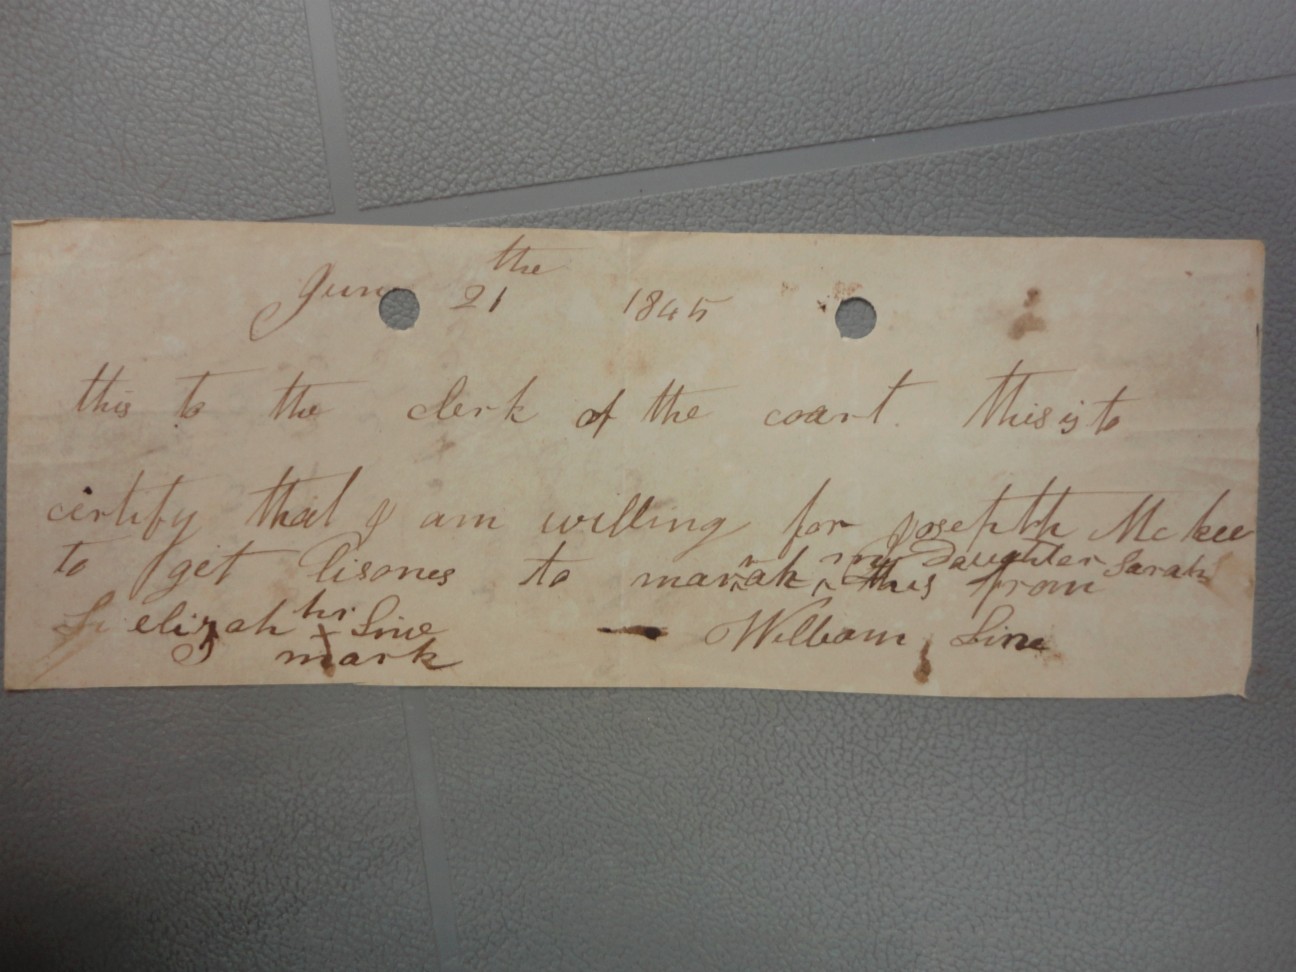 June 21 the 1845
this to the clerk of the coart. this is to
certify that I am willing for Josephth Mc kee
to get lisones to marah my Daughter Sarah this from
elizah hr x Line
mark
William Line